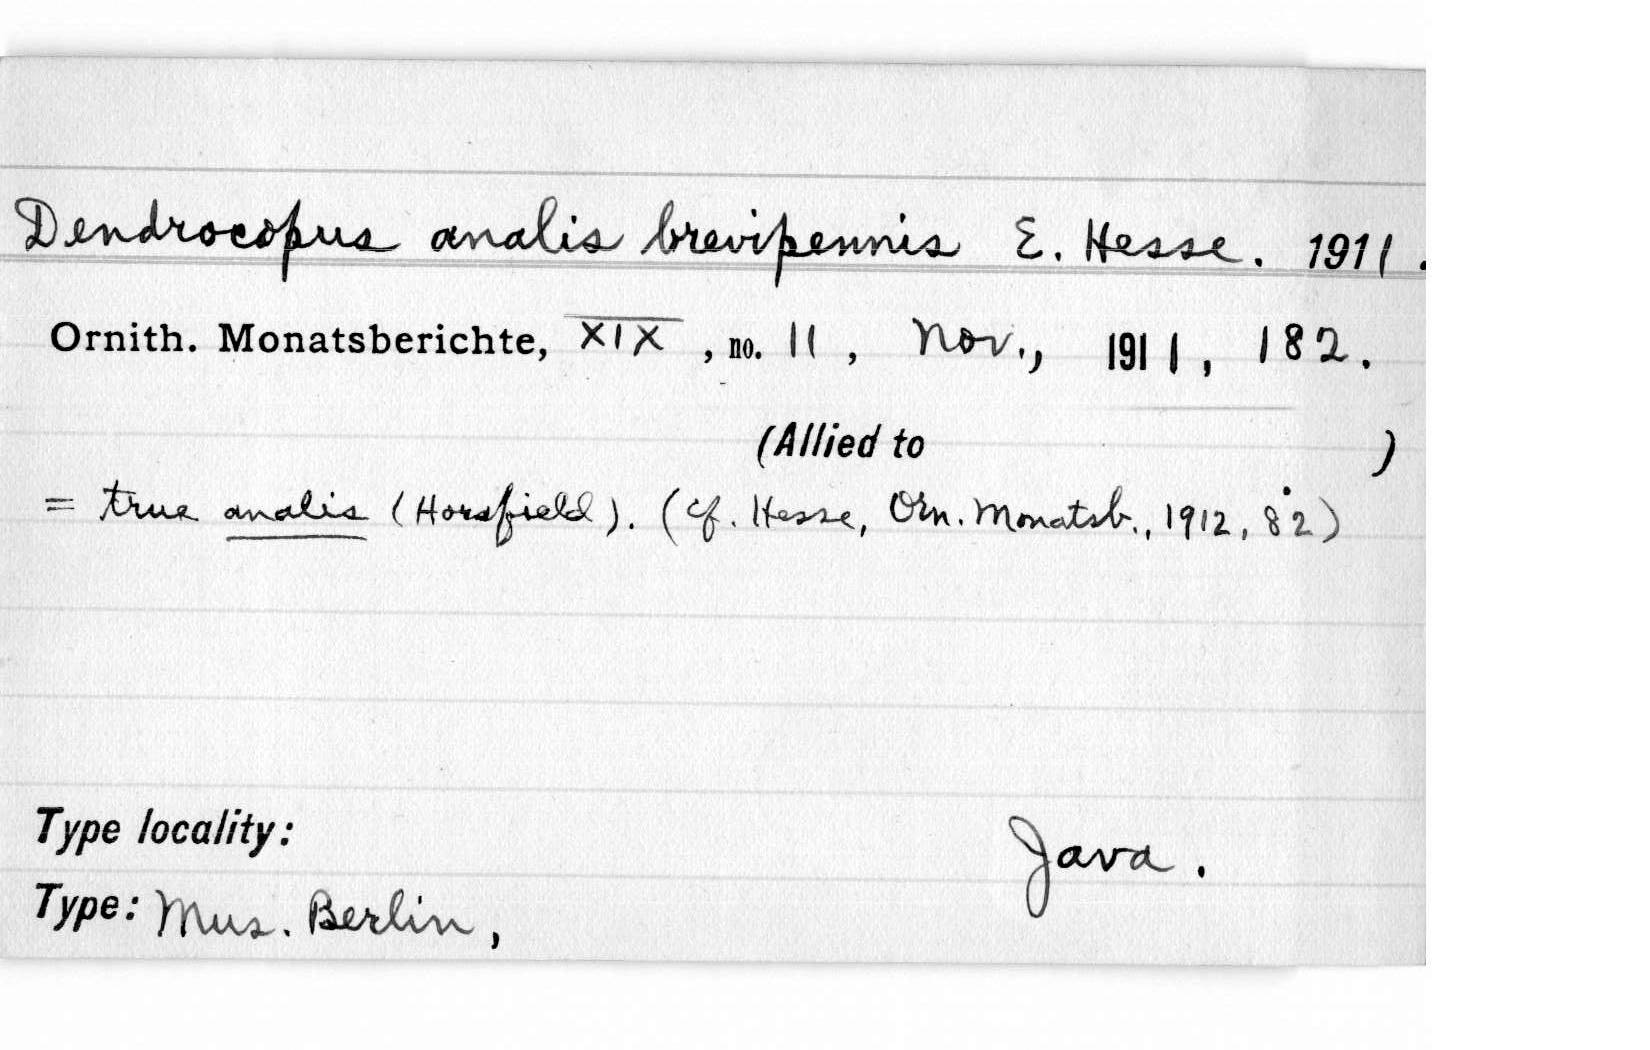 Dendrocopus analis brevipennis E. Hesse. 1911.
Ornith. Monatsberichte, XIX, no. 11, Nov., 1911, 182.
(Allied to )
= true analis (Horsfield). (cf. Hesse, Orn. Monatsb., 1912, 82)
Type locality: Java.
Type: Mus. Berlin,